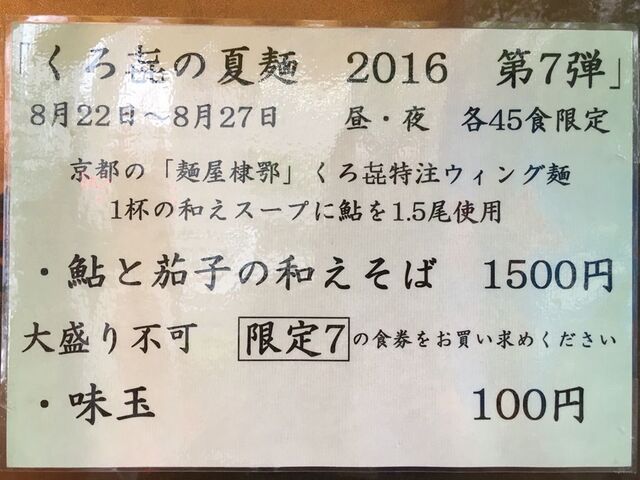 「くろ㐂の夏麺　2016　第7弾」
8月22日～8月27日　昼・夜　各45食限定
京都の「麺屋棣鄂」くろ㐂特注ウィング麺
1杯の和えスープに鮎を1.5尾使用
・鮎と茄子の和えそば　1500円
大盛り不可　限定7の食券をお買い求めください
・味玉　100円